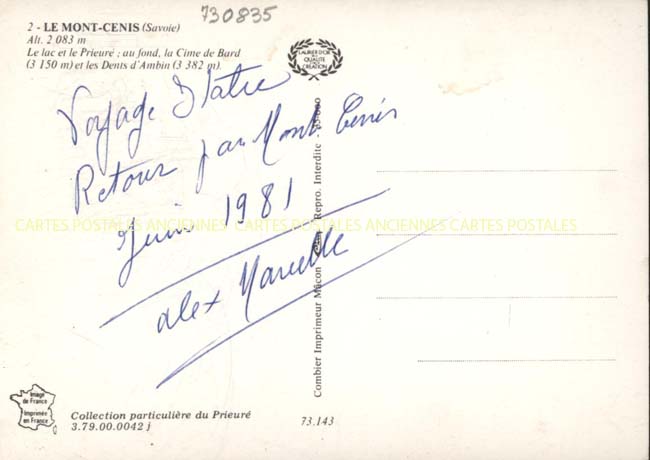 730835
2 - LE MONT-CENIS (Savoie)
Alt. 2 083 m
Le lac et le Prieuré ; au fond, la Cime de Bard
(3 150 m) et les Dents d'Ambin (3 382 m).
LAURIER D'OR
DE LA
QUALITÉ
DE LA
CRÉATION
Voyage
Retour par Mont Cenis
Juin 1981
Alex Marcelle
CARTES POSTALES ANCIENNES CARTES POSTALES ANCIENNES CARTES POSTALES
Combier Imprimeur Mâcon Repro. Interdite
Image
de France
Imprimée
en France
Collection particulière du Prieuré
3.79.00.0042 j
73.143